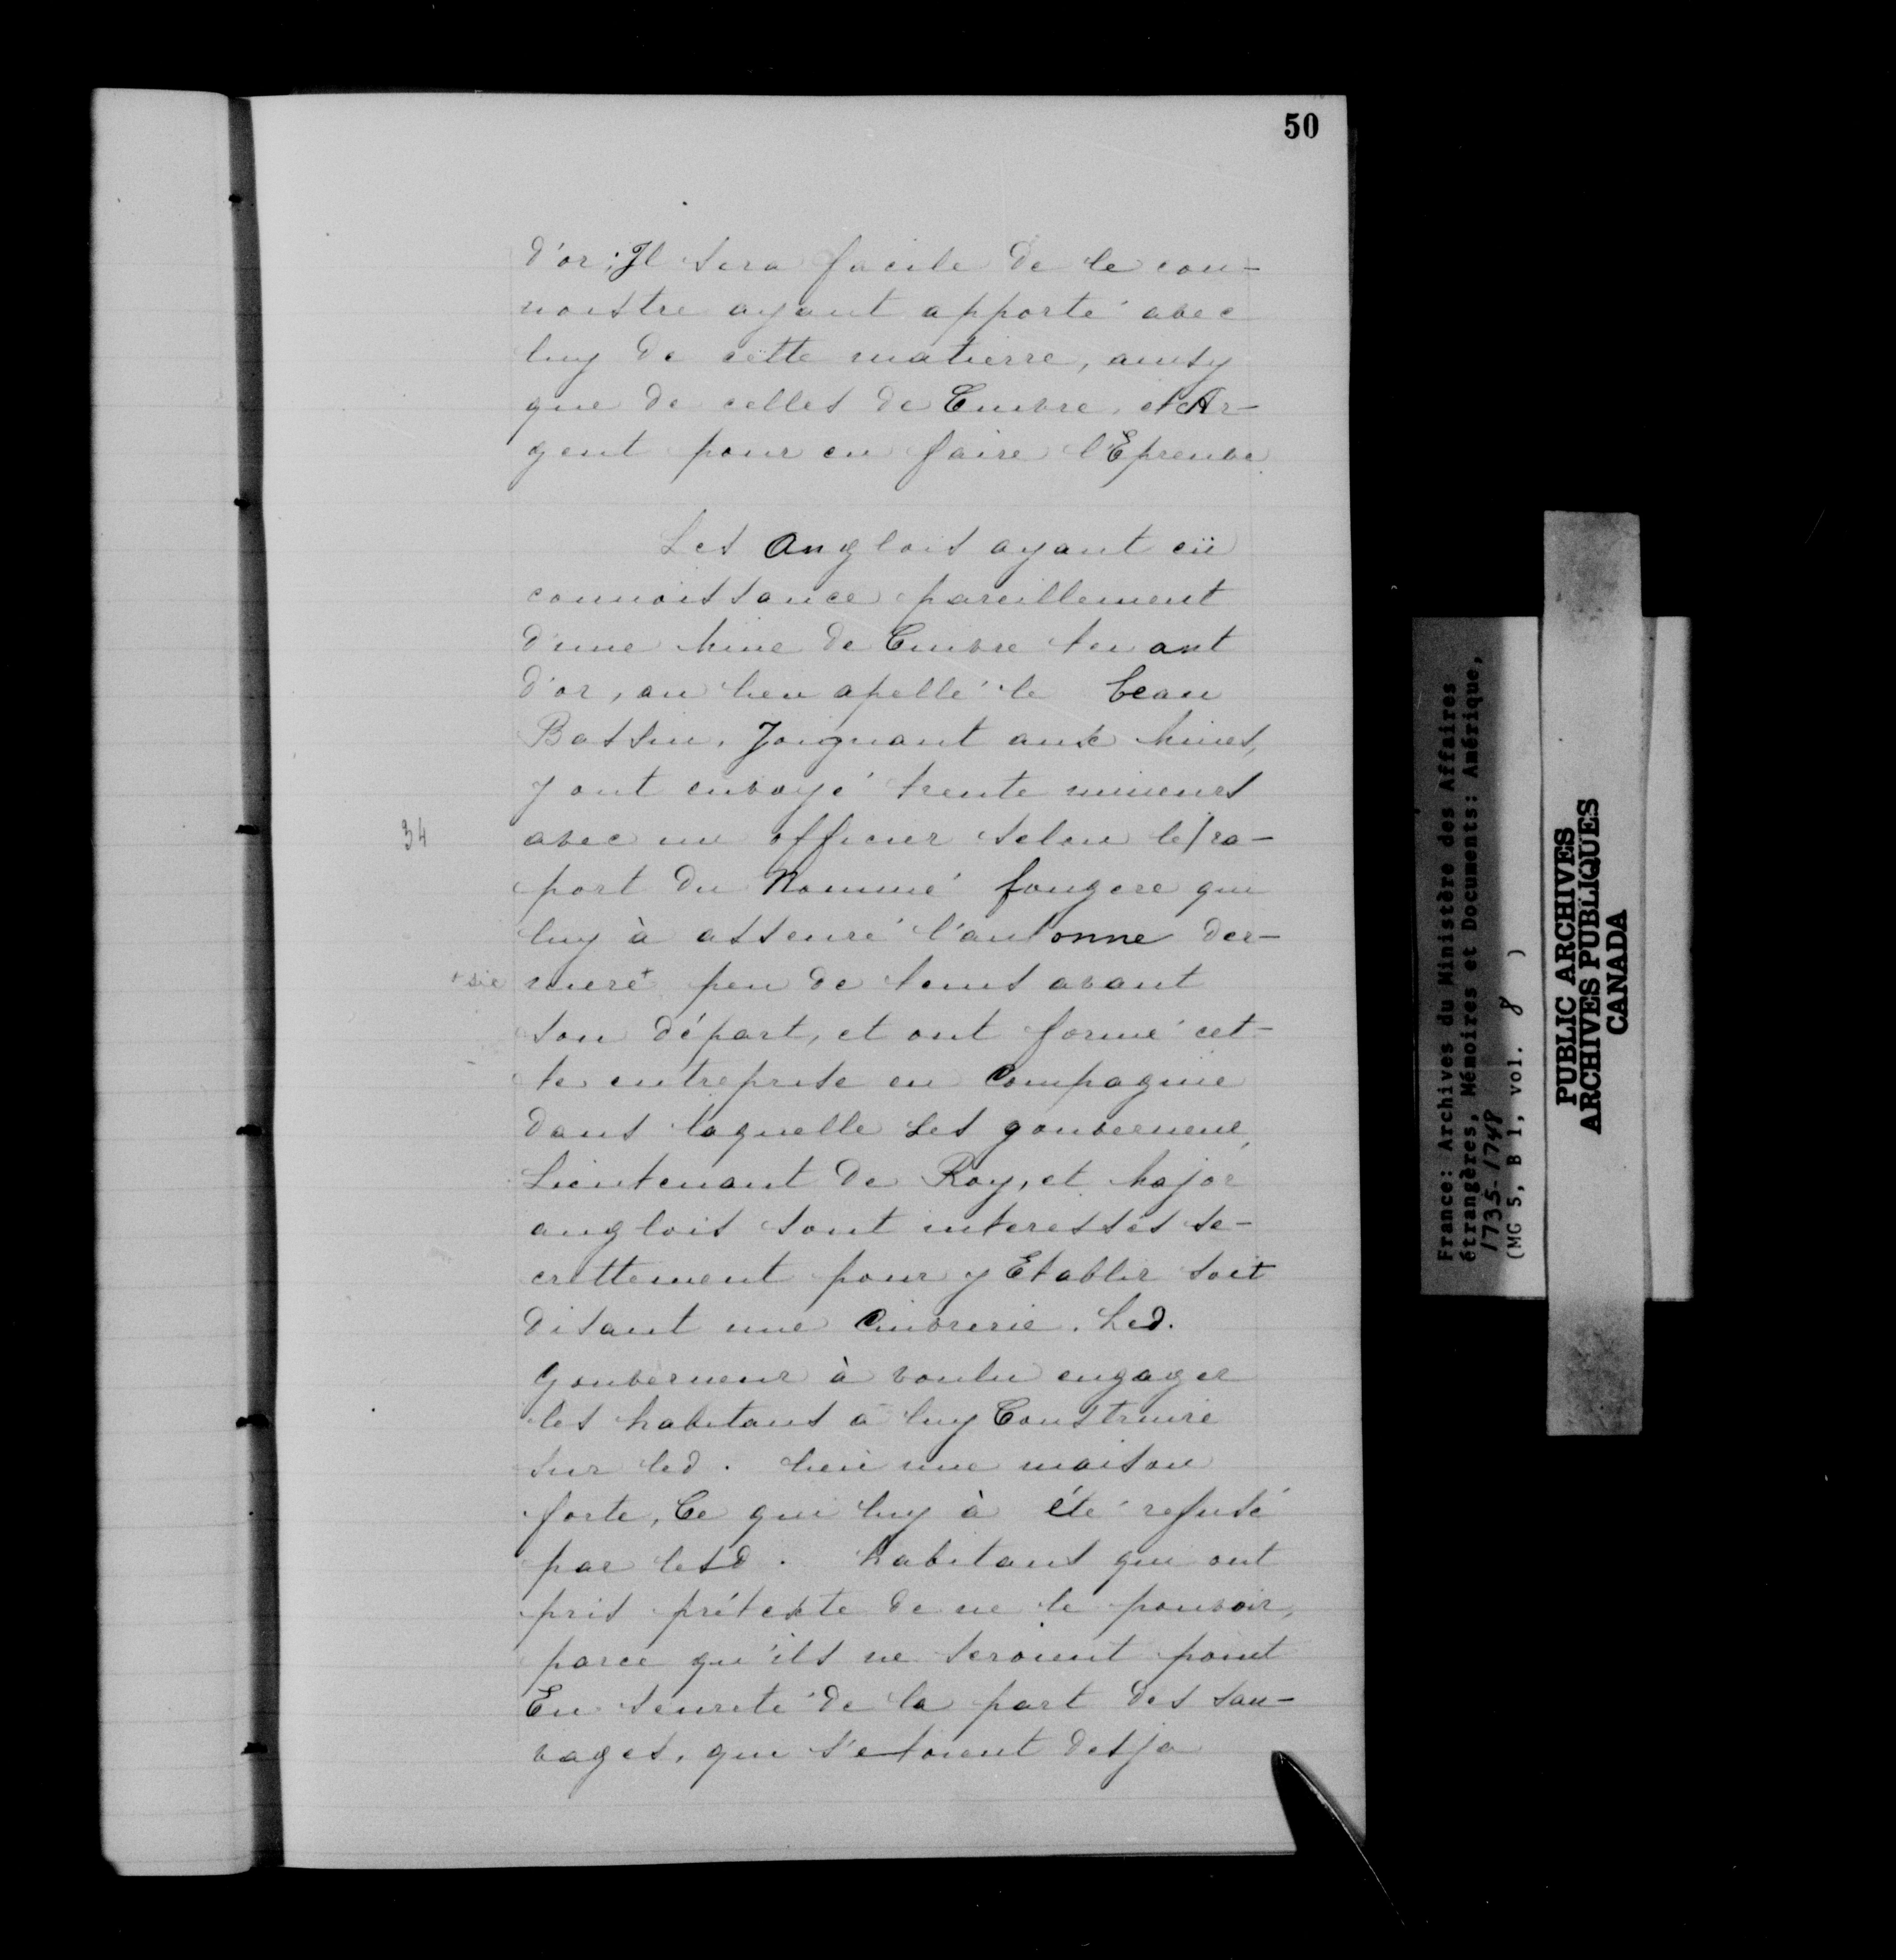 50
d'or; Il sera facile de le con-
noistre ayant apporté avec
luy de cette matierre, ainsy
que de celles de Cuivre et Ar-
gent pour en faire l'Epreuve
Les Anglois ayant eü
connoissance pareillement
d'une Mine de Cuivre tenant
d'or, au lieu apellé le beau
Bassin, Joignant aux Mines,
y ont envoyé trente mineurs
34
avec un officier selon le/ra-
port du Nommé fougere qui
luy à asseuré l'autonne der-
+ sic
niere+ peu de tems avant
son départ, et ont formé cet-
te entreprise en Compagnie
dans laquelle Les gouverneur,
Lieutenant de Roy, et Major
anglois sont interessés se-
crettement pour y Etablir soit
disant une Cuivrerie. Led.
Gouverneur à voulu engager
les habitans à luy Construire
sur led. lieu une maison
forte, Ce qui luy à été refusé
par lesd. habitans qui ont
pris prétexte de ne le pouvoir,
parce qu'ils ne seroient point
En seureté de la part des sau-
vages, qui s'etoient desja
France: Archives du Ministère des Affaires
étrangères, Mémoires et Documents: Amérique,
1735-1748
(MG 5, B 1, vol. 8 )
PUBLIC ARCHIVES
ARCHIVES PUBLIQUES
CANADA